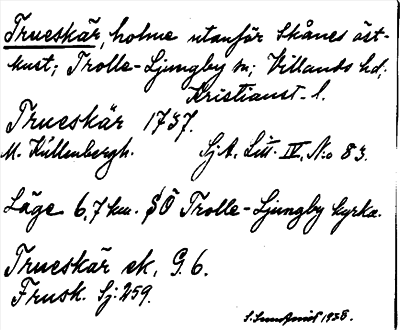 Trueskär, holme utanför Skånes öst-
kust; Trolle-Ljungby sn; Villands hd;
Kristianst. l.
Trueskär 1737.
M. Küllenbergh. Sj.A. Litt. IV, N:o 83.
Läge 6,7 km. SÖ Trolle-Ljungby kyrka.
Trueskär ek. G. 6.
Frusk. Sj: 259.
1938.